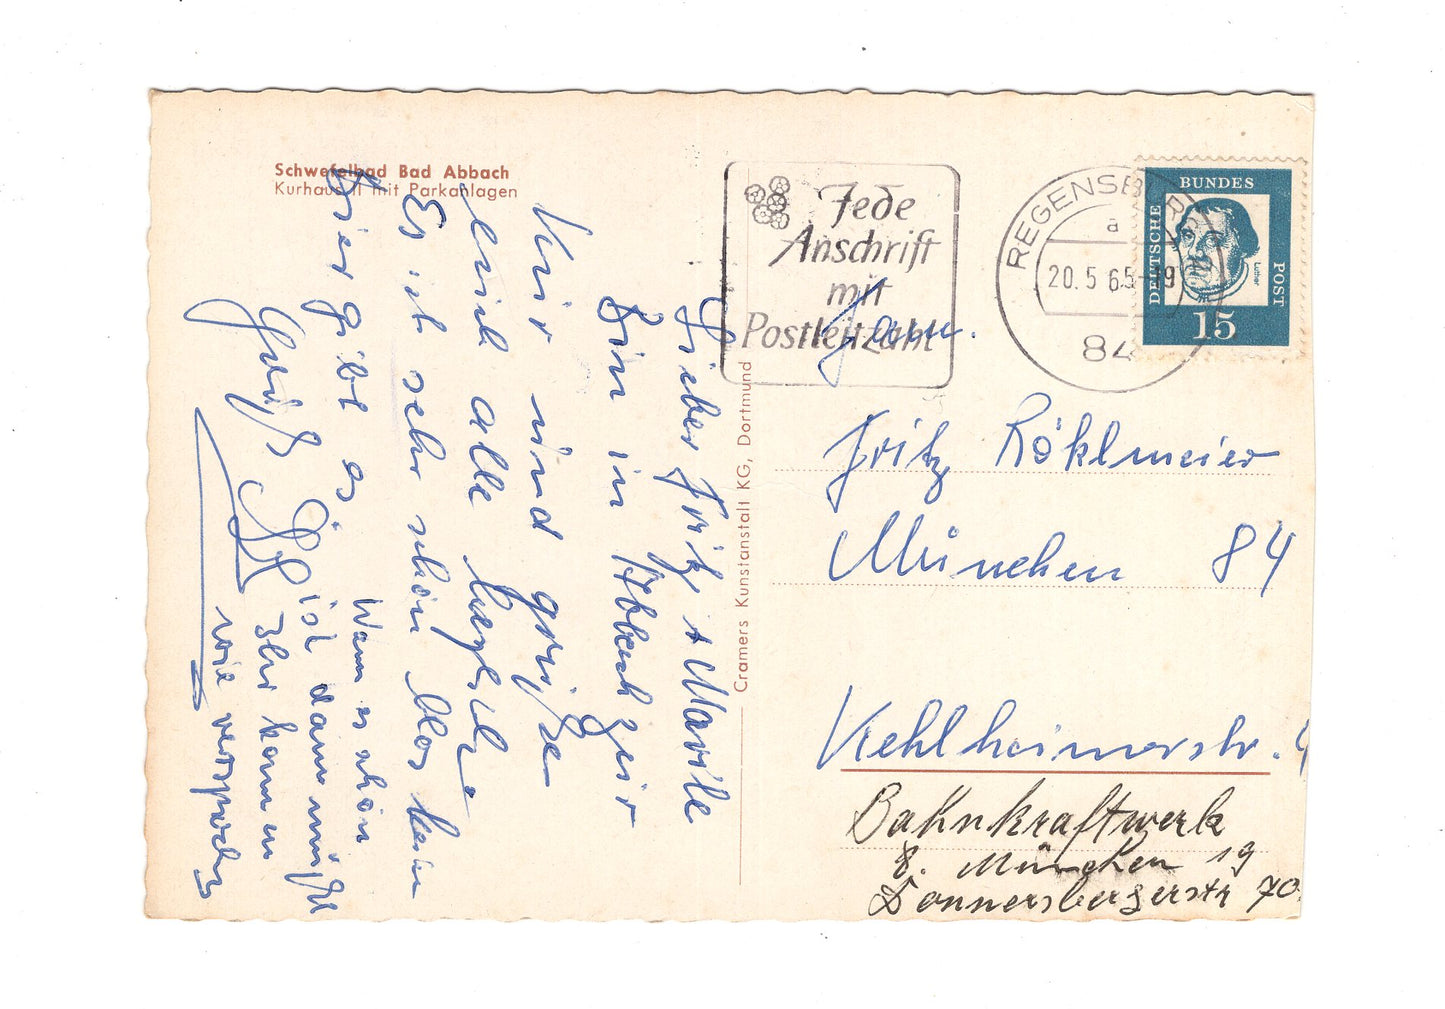 Schwefelbad Bad Abbach
Kurhaus II mit Parkanlagen
Lieber Fritz + Marile
Bin in Abbach zur
Kur und grüße
euch alle herzlich
Es ist sehr schön blos kein
Bier gibt es
Wann es schön
ist dann müßt
Ihr kommen
wie versprochen
Gruß
Cramers Kunstanstalt KG, Dortmund
Jede
Anschrift
mit
Postleitzahl
REGENSBURG
a
20.5.65-19
84
DEUTSCHE
BUNDES
POST
Luther
15
Fam.
Fritz Röhlmeier
München 84
Kehlheimerstr.
Bahnkraftwerk
8. München 19
Donnersbergerstr 70